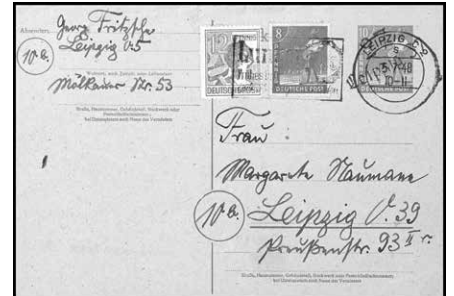 Absender:
Georg Fritzsche
Leipzig O. 5
10a.
Mölkauer Str. 53
Wohnort, auch Zustell- oder Leitpostamt
Straße, Hausnummer, Gebäudeteil, Stockwerk oder
Postschließfachnummer;
bei Untermietern auch Name des Vermieters
12
DEUTSCHE POST
8
DEUTSCHE POST
LEIPZIG C 2
Frau
Margarete Naumann
10a.
Leipzig O. 39
Preußenstr. 93 II r.
Straße, Hausnummer, Gebäudeteil, Stockwerk oder Postschließfachnummer;
bei Untermietern auch Name des Vermieters